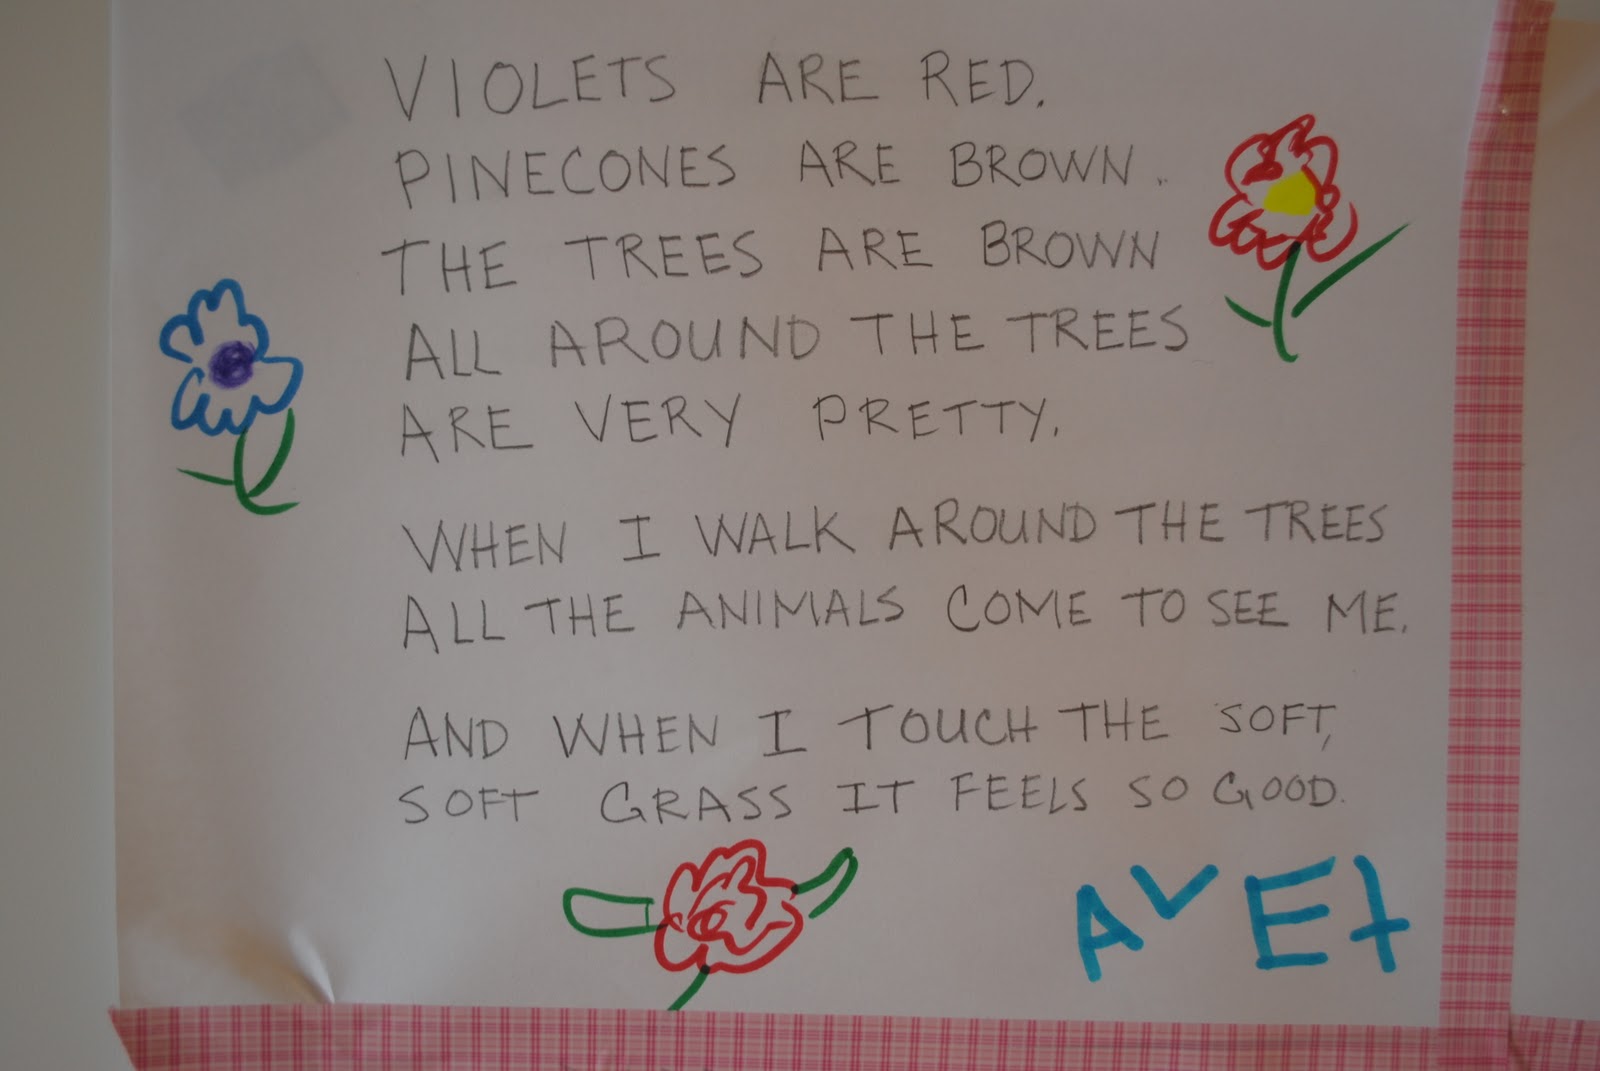 VIOLETS ARE RED.
PINECONES ARE BROWN.
THE TREES ARE BROWN
ALL AROUND THE TREES
ARE VERY PRETTY.
WHEN I WALK AROUND THE TREES
ALL THE ANIMALS COME TO SEE ME.
AND WHEN I TOUCH THE SOFT,
SOFT GRASS IT FEELS SO GOOD.
AVEt